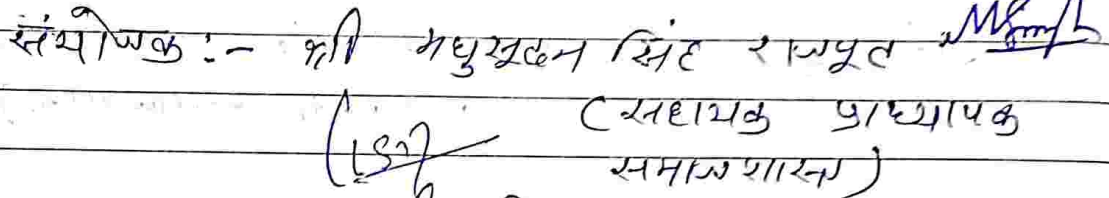 संयोजक :- श्री मधुसूदन सिंह राजपूत
(सहायक प्राध्यापक
समाजशास्त्र)